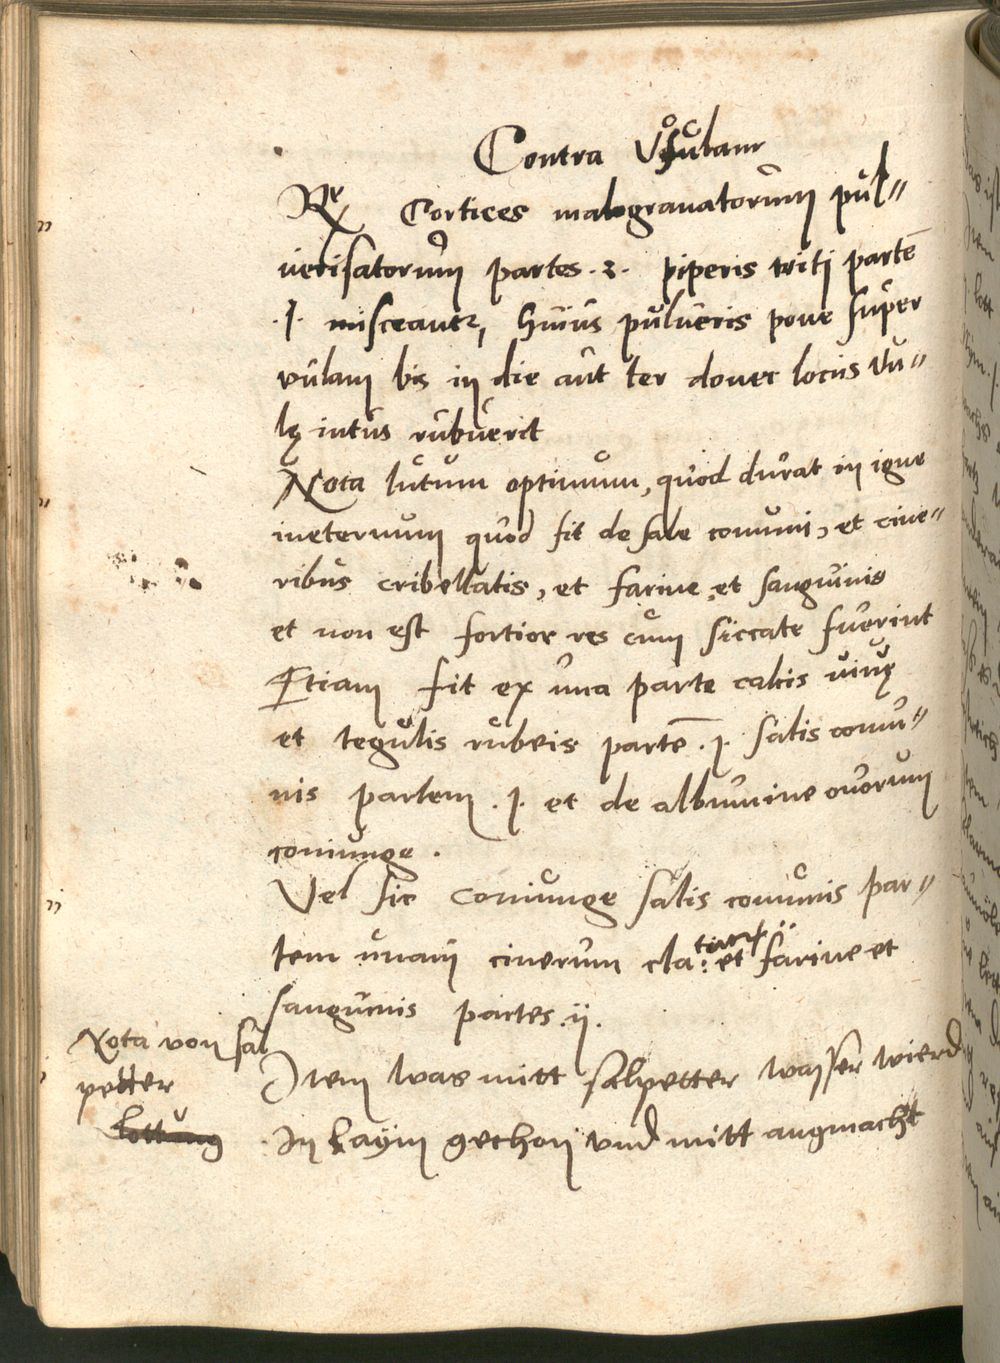 Contra Vuulam
Rx Cortices malogranatorum pul〃
verisatorum partes .2. piperis triti partē
.1. misceantr, huius pulueris pone super
vulam bis in die aut ter donec locus vu〃
lę intus rubuerit
Nota lutum optimum, quod durat in igne
ineternum quod fit de sale comuni, et cine〃
ribus cribellatis, et farine et sanguinis
et non est fortior res cum siccate fuerint
Etiam fit ex una parte calcis vivę
et tegulis rubeis partē .j. salis comu〃
nis partem .j. et de albumine ovorum
coniunge .
Vel sic coniunge salis comunis par〃
tem unam cinerum cla: et farine et
sanguinis partes .ij.
Nota von sal
petter
Item was mitt salpetter wasser wierd
In Laÿm gethon vnd mitt angmacht